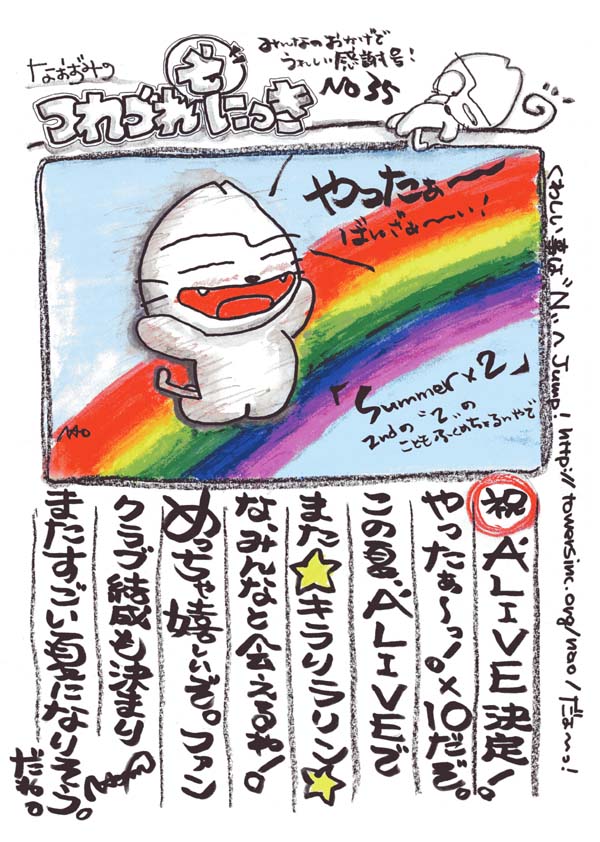 なおおみの
つれづれ
ぞ
にっき
みんなのおかげで
うれしい感謝号!
NO 35
やったぁ〜
ばんざぁ〜い!
「Summer×2」
2ndの"2"の
こともふくめちゃるんやで
NAO
くわしい事は"N"へJump! http://towersinc.org/nao/だぁ〜っ!
祝 A'LIVE 決定!
やったぁ〜っ!。×10だぞ。
この夏、A'LIVEで
また☆キラリラリン☆
な、みんなと会えるね!。
めっちゃ嬉しいぞ。ファン
クラブ結成も決まり
またすごい夏になりそう。
だね。